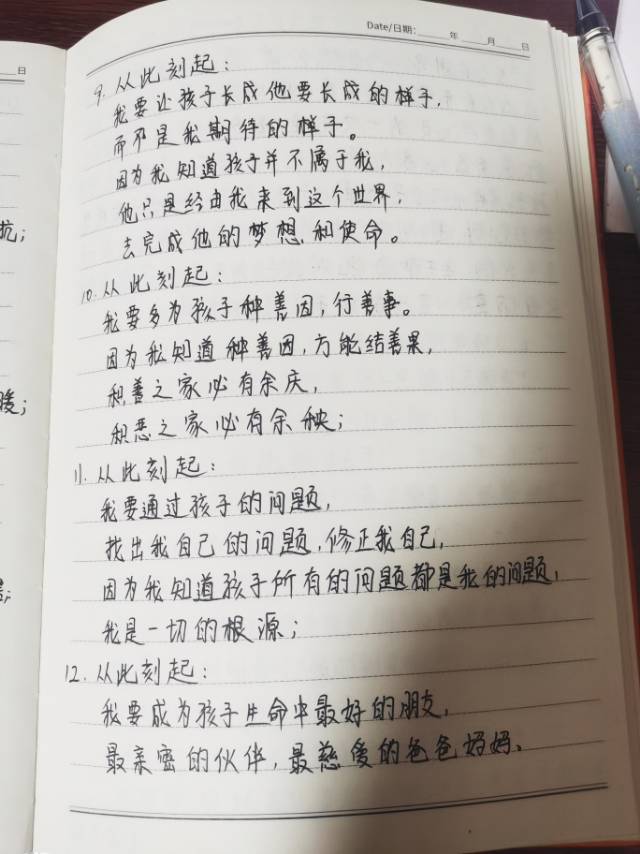 Date/日期: 年 月 日
日
9. 从此刻起:
我要让孩子长成他要长成的样子,
而不是我期待的样子。
因为我知道孩子并不属于我,
他只是经由我来到这个世界,
去完成他的梦想和使命。
10. 从此刻起:
我要多为孩子种善因,行善事。
因为我知道种善因,方能结善果,
积善之家必有余庆,
积恶之家必有余殃;
11. 从此刻起:
我要通过孩子的问题,
找出我自己的问题,修正我自己,
因为我知道孩子所有的问题都是我的问题,
我是一切的根源;
12. 从此刻起:
我要成为孩子生命中最好的朋友,
最亲密的伙伴,最慈爱的爸爸妈妈、
抗;
暖;